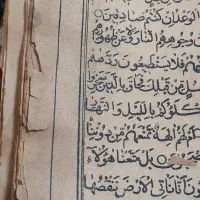 الوعد ان كنتم صادقين
وجوههم النار ولا عن ظهور
هم فلا يستطيعون ردها
من قبلك فحاق بالذين سخروا
يكلؤكم بالليل والنها
لهم الهة تمنعهم من دوننا
بل متعنا هؤلاء
انا ناتي الارض ننقصها